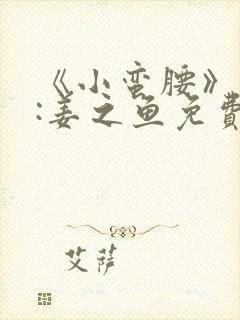 《小蛮腰》
:姜之鱼免費
艾萨